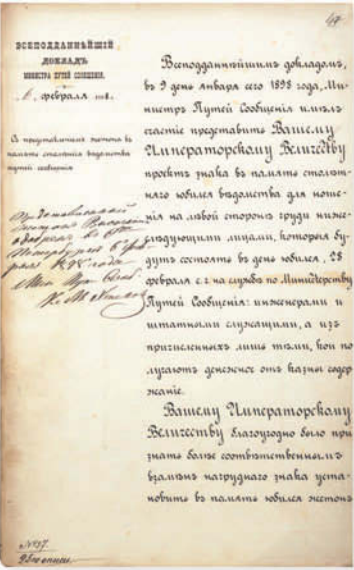 47
ВСЕПОДДАННѢЙШІЙ
ДОКЛАДЪ
МИНИСТРА ПУТЕЙ СООБЩЕНІЯ.
6 февраля 1898.
Съ представленіемъ жетона въ
память столѣтія вѣдомства
путей сообщенія
1898 года
Всеподданнѣйшимъ докладомъ,
въ 9 день января сего 1898 года, Ми-
нистръ Путей Сообщенія имѣлъ
счастіе представить Вашему
Императорскому Величеству
проектъ знака въ память столѣт-
няго юбилея вѣдомства для ноше-
нія на лѣвой сторонѣ груди ниже-
слѣдующими лицами, которыя бу-
дутъ состоять въ день юбилея, 28
февраля с. г. на службѣ по Министерству
Путей Сообщенія: инженерами и
штатными служащими, а изъ
причисленныхъ лишь тѣми, кои по-
лучаютъ денежное отъ казны содер-
жаніе.
Вашему Императорскому
Величеству благоугодно было при-
знать болѣе соотвѣтственнымъ
взамѣнъ нагруднаго знака уста-
новить въ память юбилея жетонъ
№ 37.